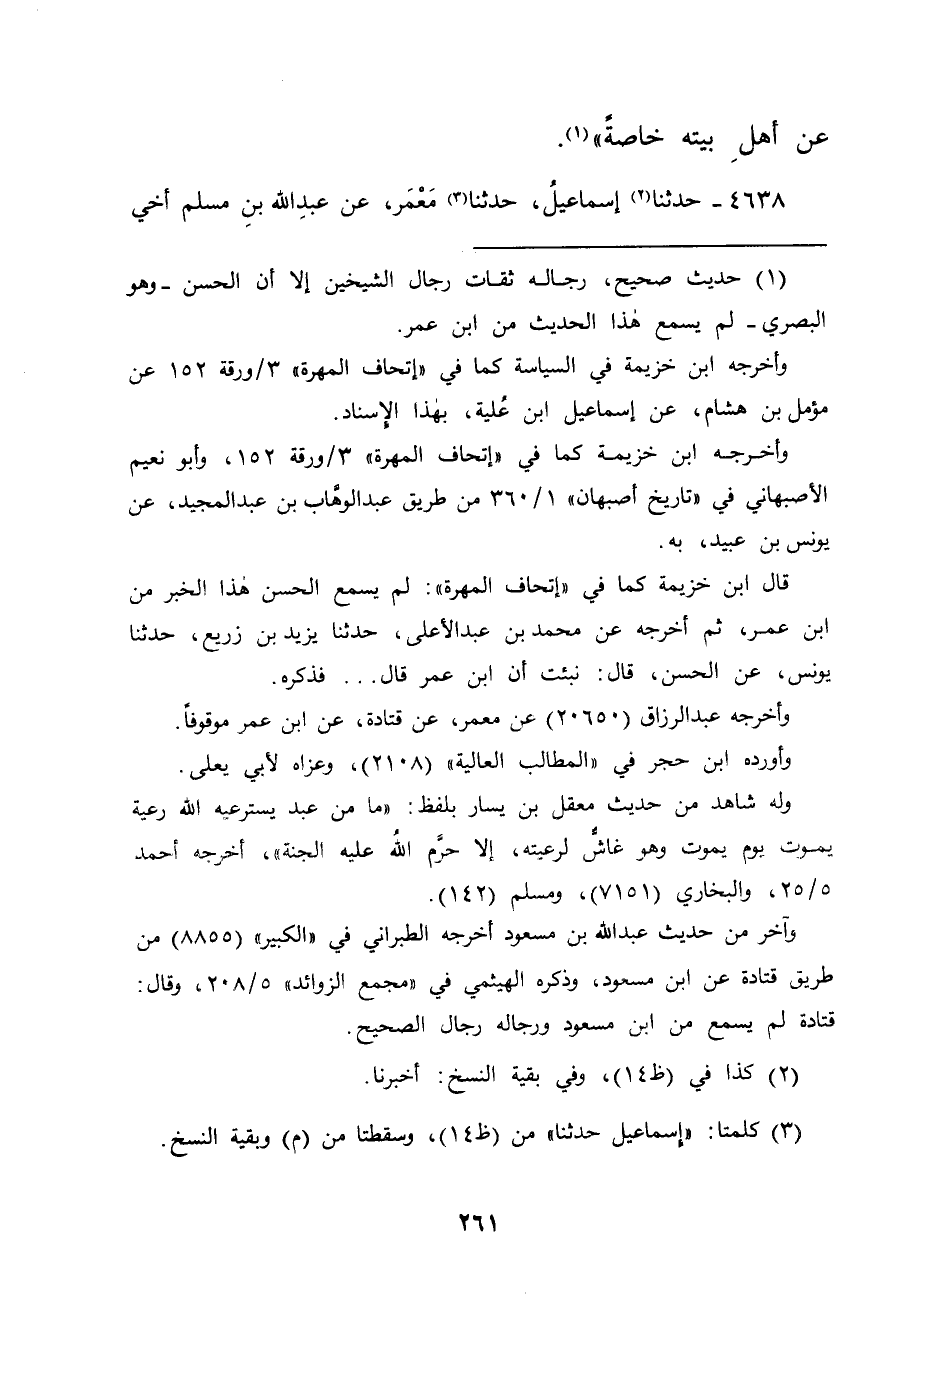 عن أهلِ بيته خاصةً»(١).
٤٦٣٨ ـ حدثنا(٢) إسماعيلُ، حدثنا(٣) مَعْمَر، عن عبدِالله بنِ مسلم أخي
(١) حديث صحيح، رجاله ثقات رجال الشيخين إلا أن الحسن ـ وهو
البصري ـ لم يسمع هٰذا الحديث من ابن عمر.
وأخرجه ابن خزيمة في السياسة كما في «إتحاف المهرة» ٣/ورقة ١٥٢ عن
مؤمل بن هشام، عن إسماعيل ابن عُلية، بهٰذا الإِسناد.
وأخرجه ابن خزيمة كما في «إتحاف المهرة» ٣/ورقة ١٥٢، وأبو نعيم
الأصبهاني في «تاريخ أصبهان» ٣٦٠/١ من طريق عبدالوهَّاب بن عبدالمجيد، عن
يونس بن عبيد، به.
قال ابن خزيمة كما في «إتحاف المهرة»: لم يسمع الحسن هٰذا الخبر من
ابن عمر، ثم أخرجه عن محمد بن عبدالأعلى، حدثنا يزيد بن زريع، حدثنا
يونس، عن الحسن، قال: نبئت أن ابن عمر قال... فذكره.
وأخرجه عبدالرزاق (٢٠٦٥٠) عن معمر، عن قتادة، عن ابن عمر موقوفاً.
وأورده ابن حجر في «المطالب العالية» (٢١٠٨)، وعزاه لأبي يعلى.
وله شاهد من حديث معقل بن يسار بلفظ: «ما من عبد يسترعيه الله رعية
يموت يوم يموت وهو غاشٌّ لرعيته، إلا حرَّم اللهُ عليه الجنة»، أخرجه أحمد
٢٥/٥، والبخاري (٧١٥١)، ومسلم (١٤٢).
وآخر من حديث عبدالله بن مسعود أخرجه الطبراني في «الكبير» (٨٨٥٥) من
طريق قتادة عن ابن مسعود، وذكره الهيثمي في «مجمع الزوائد» ٢٠٨/٥، وقال:
قتادة لم يسمع من ابن مسعود ورجاله رجال الصحيح.
(٢) كذا في (ظ١٤)، وفي بقية النسخ: أخبرنا.
(٣) كلمتا: «إسماعيل حدثنا» من (ظ١٤)، وسقطتا من (م) وبقية النسخ.
٢٦١